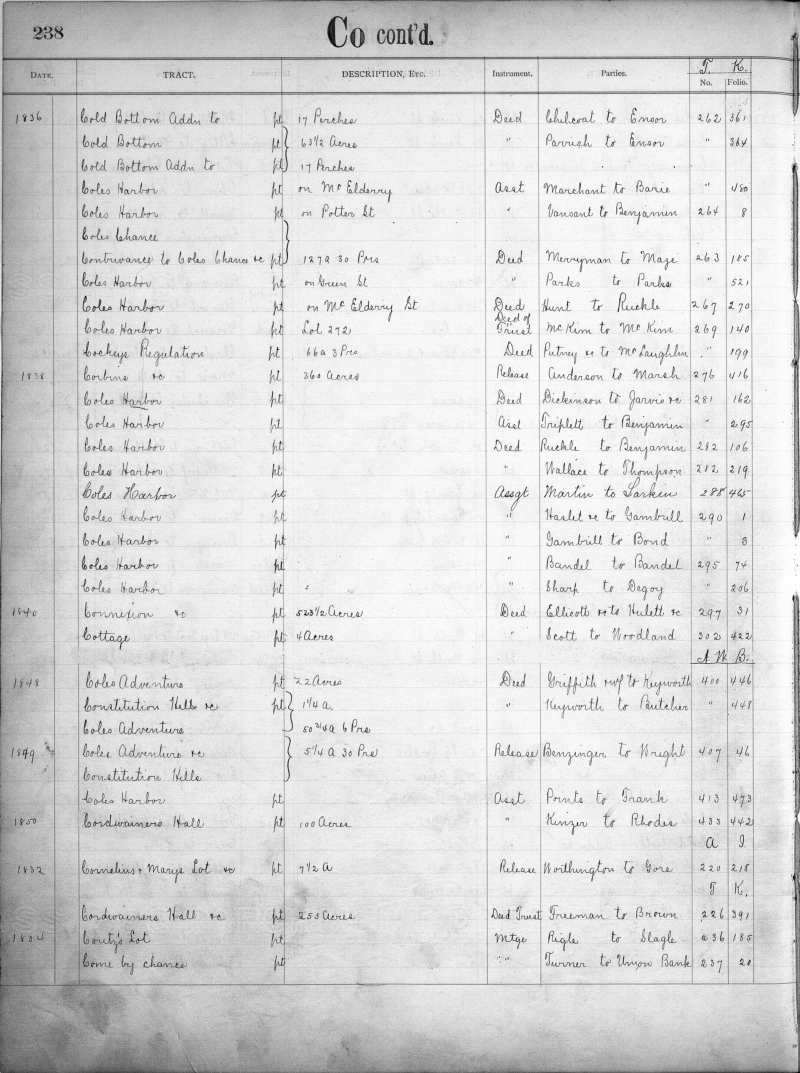 238 Co cont'd.
T. K.
DATE. TRACT. DESCRIPTION, ETC. Instrument. Parties. No. Folio.
1836 Cold Bottom Addn to pt 17 Perches Deed Chilcoat to Ensor 262 361
Cold Bottom pt 63 1/2 Acres " Parrish to Ensor " 364
Cold Bottom Addn to pt 17 Perches
Coles Harbor pt on Mc Elderry Asst Marchant to Barie " 480
Coles Harbor pt on Potter St " Vansant to Benjamin 264 8
Coles Chance
Contrivance to Coles Chance &c pt 127a 30 Prs Deed Merryman to Maze 263 185
Coles Harbor pt on Green St " Parks to Parks " 521
Coles Harbor pt on Mc Elderry St Deed Hunt to Ruckle 267 270
Coles Harbor pt Lot 272 Deed of Trust McKim to McKim 269 140
Cockeys Regulation pt 66a 3 Prs Deed Putney &c to McLaughlin " 199
1838 Corbins &c pt 360 Acres Release Anderson to Marsh 276 416
Coles Harbor pt Deed Dickinson to Jarvis &c 281 162
Coles Harbor pt Asst Triplett to Benjamin " 295
Coles Harbor pt Deed Ruckle to Benjamin 282 106
Coles Harbor pt " Wallace to Thompson 282 219
Coles Harbor pt Assgt Martin to Larkin 288 465
Coles Harbor pt " Haslet &c to Gambrill 290 1
Coles Harbor pt " Gambrill to Bond " 3
Coles Harbor pt " Bandel to Bandel 295 74
Coles Harbor pt " " " Sharp to Degoy " 206
1840 Connexion &c pt 523 1/2 Acres Deed Ellicott &c to Hulett &c 297 31
Cottage pt 4 Acres " Scott to Woodland 302 422
A. W. B.
1848 Coles Adventure pt 22 Acres Deed Griffith & wf to Keyworth 400 446
Constitution Hills &c pt 1 1/4 a. " Keyworth to Butcher " 448
Coles Adventure 50 3/4 a 6 Prs
1849 Coles Adventure &c 5 1/4 a 30 Prs Release Benzinger to Wright 407 46
Constitution Hills
Coles Harbor pt Asst Points to Frank 413 473
1850 Cordwainers Hall pt 100 Acres " Kinzer to Rhodes 433 442
A I.
1832 Cornelius & Marys Lot &c pt 7 1/2 A Release Worthington to Gore 220 218
T K.
Cordwainers Hall &c pt 255 Acres Deed Trust Freeman to Brown 226 391
1834 Couty's Lot pt Mtge Rigle to Slagle 236 185
Come by chance pt " Turner to Union Bank 237 20